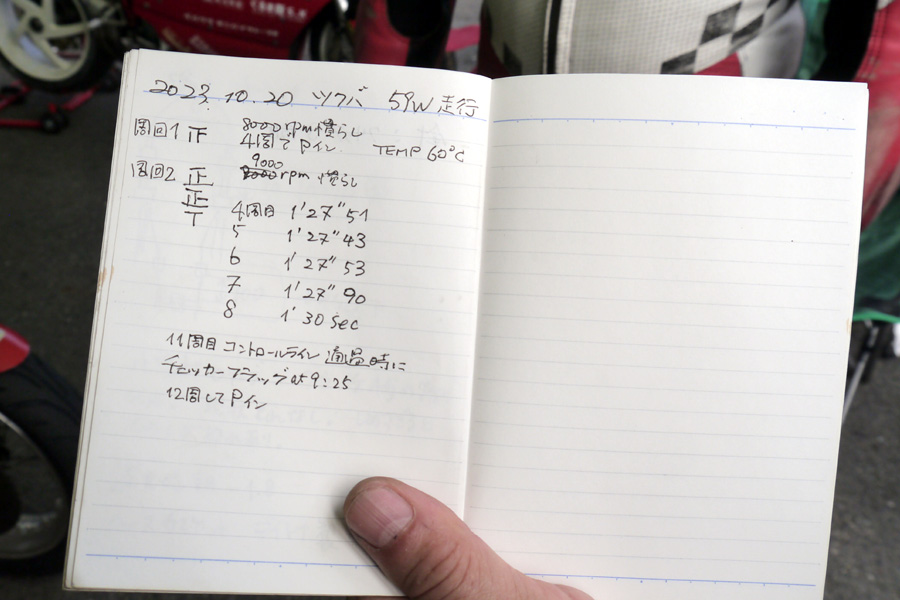 2023. 10. 20 ツクバ 59W 走行
周回1 正 8000rpm 慣らし
4周で Pイン. TEMP 60°C
周回2 正 9000
rpm 慣らし
正
T 4周目 1'27"51
5 1'27"43
6 1'27"53
7 1'27"90
8 1'30 sec
11周目 コントロールライン 通過時に
チェッカーフラッグ at 9:25
12周して Pイン